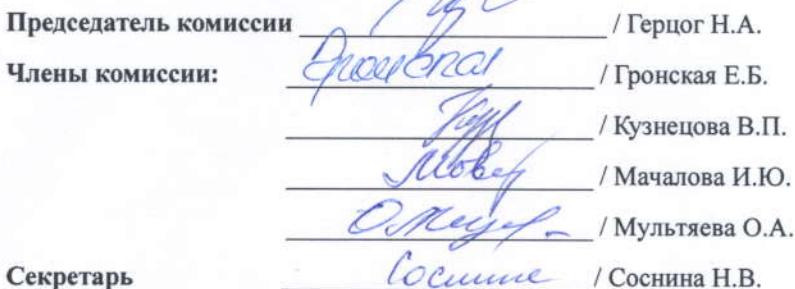 Председатель комиссии / Герцог Н.А.
Члены комиссии: / Гронская Е.Б.
/ Кузнецова В.П.
/ Мачалова И.Ю.
/ Мультяева О.А.
Секретарь / Соснина Н.В.